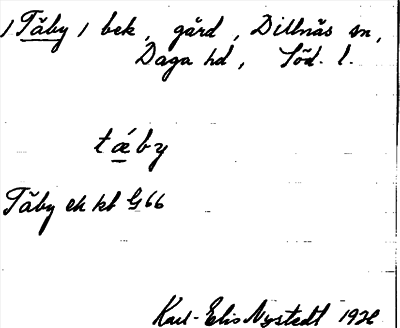 /Täby/ bek, gård, Dillnäs sn,
Daga hd, Söd. l.
tǽby
Täby ek kt G66
Karl-Elis Nystedt